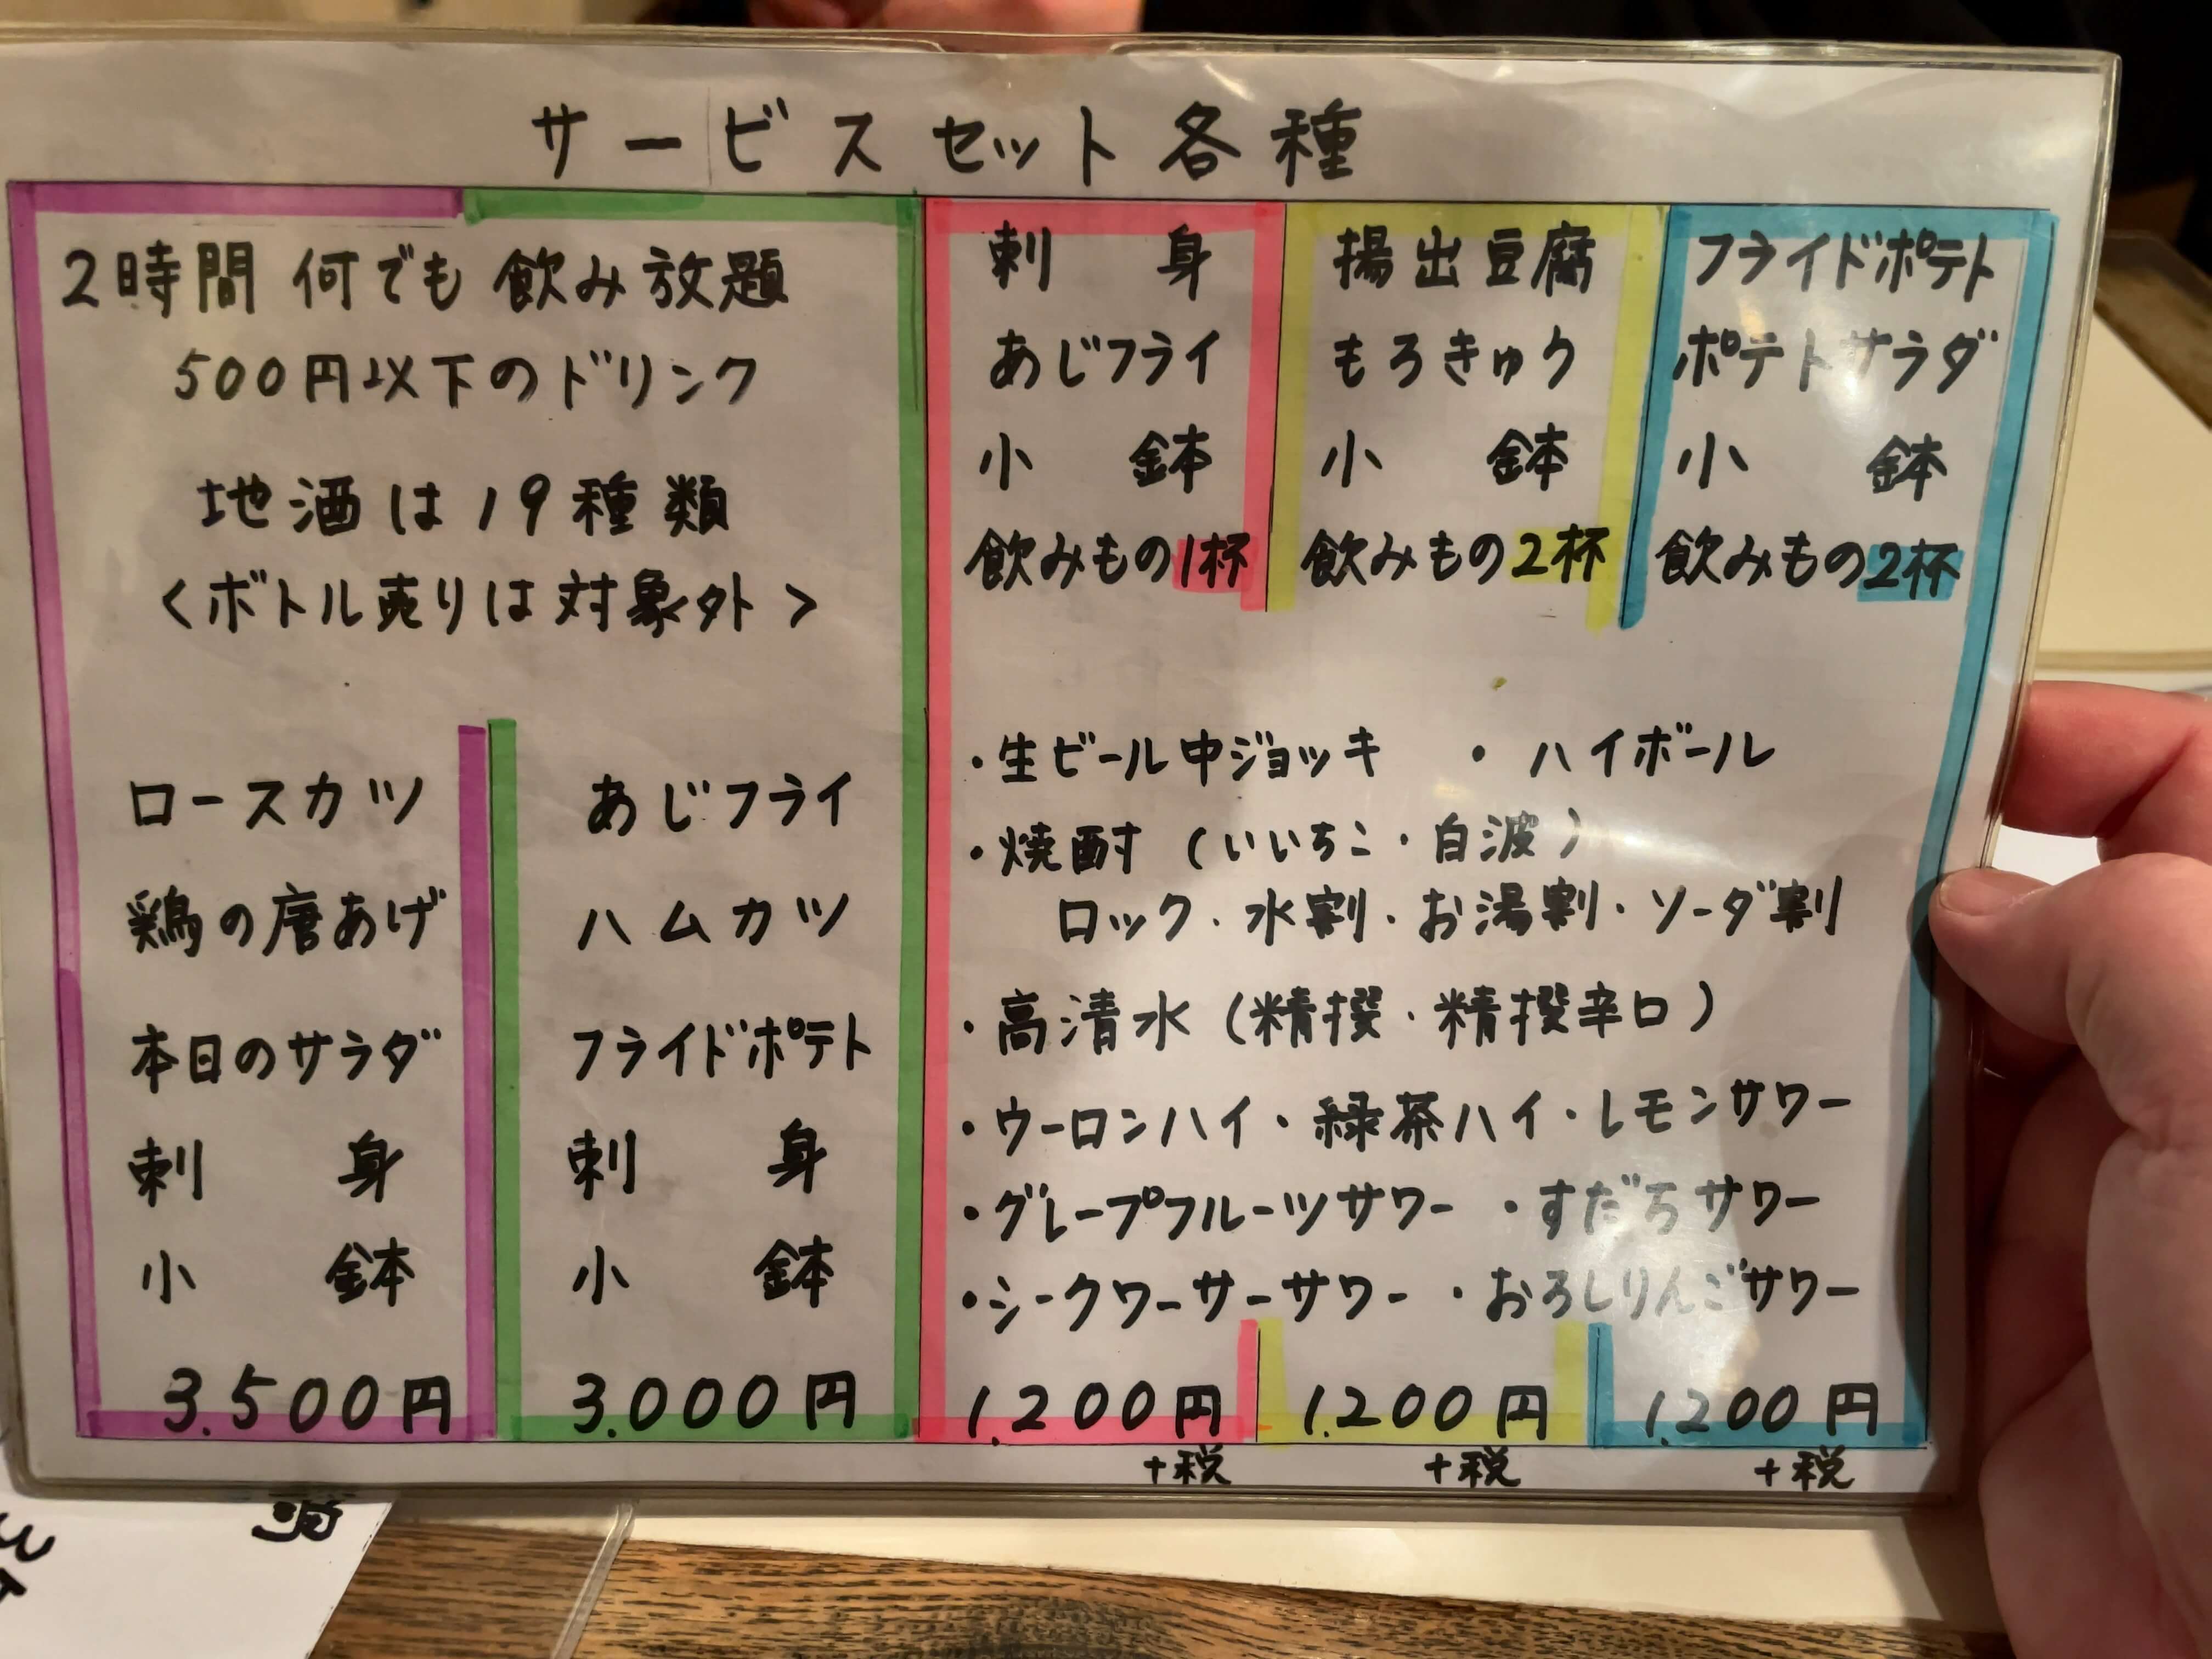 サービスセット各種
2時間 何でも 飲み放題
500円以下のドリンク
地酒は19種類
<ボトル売りは対象外>
ロースカツ
鶏の唐あげ
本日のサラダ
刺身
小鉢
3.500円
あじフライ
ハムカツ
フライドポテト
刺身
小鉢
3.000円
刺身
あじフライ
小鉢
飲みもの1杯
揚出豆腐
もろきゅう
小鉢
飲みもの2杯
フライドポテト
ポテトサラダ
小鉢
飲みもの2杯
・生ビール中ジョッキ ・ハイボール
・焼酎（いいちこ・白波）
ロック・水割・お湯割・ソーダ割
・高清水（精撰・精撰辛口）
・ウーロンハイ・緑茶ハイ・レモンサワー
・グレープフルーツサワー ・すだちサワー
・シークワーサーサワー ・おろしりんごサワー
1.200円 1.200円 1.200円
+税 +税 +税